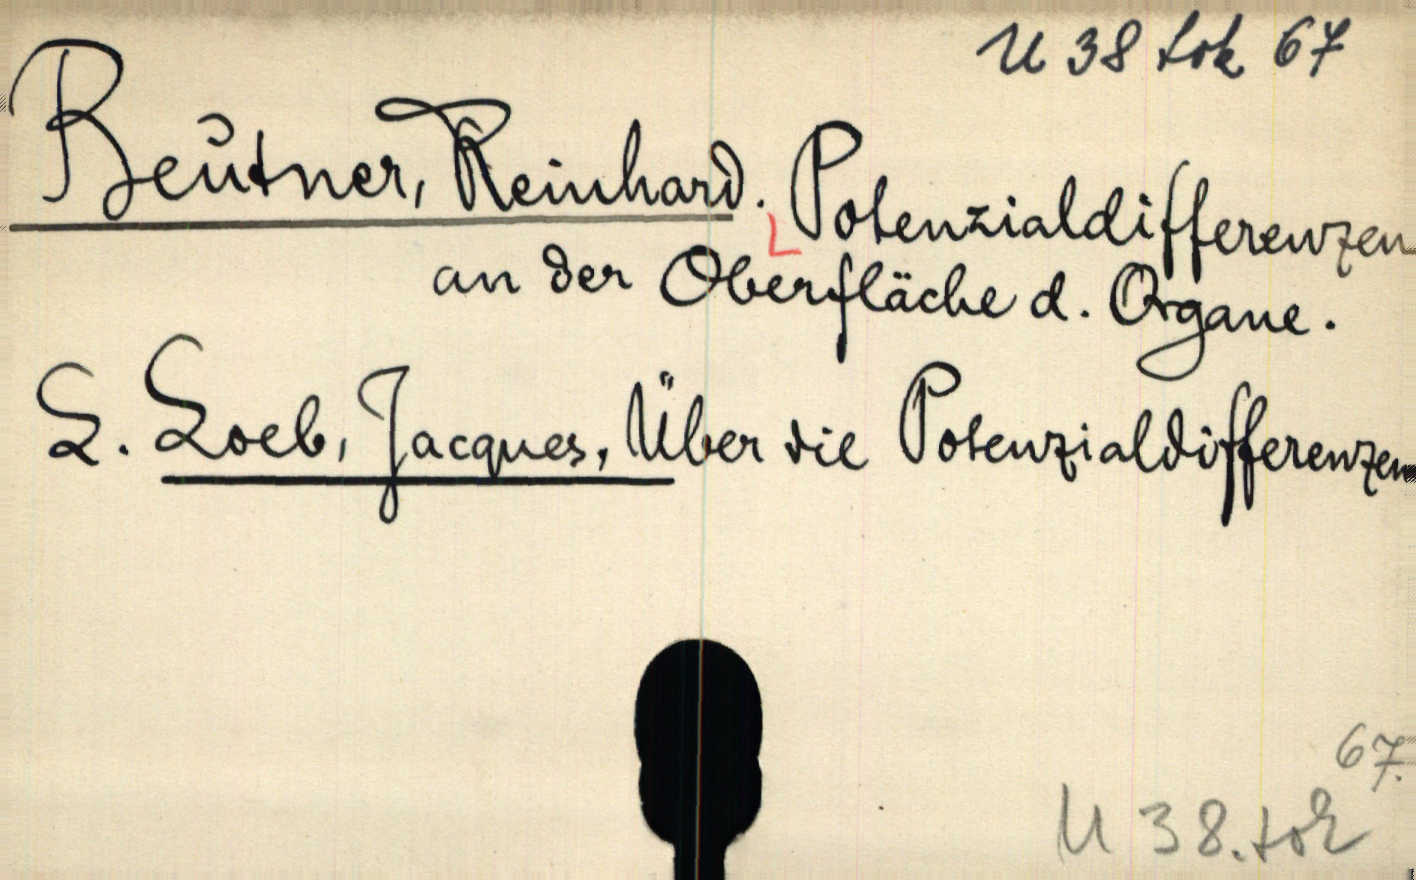 U 38 tok 67
Beutner, Reinhard. Potenzialdifferenzen
an der Oberfläche d. Organe.
S. Loeb, Jacques, Über die Potenzialdifferenzen
67.
U 38. tok